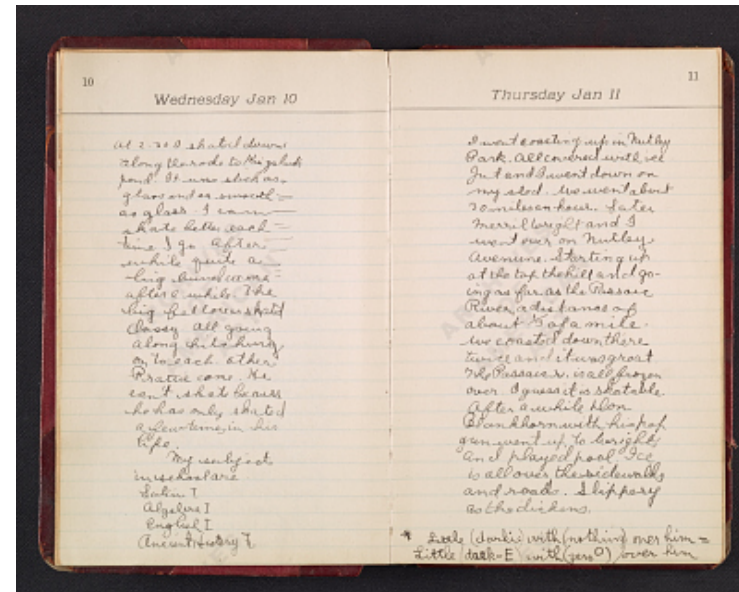 10
Wednesday Jan 10
At 2.30 I skated down
along the rode to Kingsland
pond. It was slick as
glass and as smooth
as glass. I can
skate better each
time I go. After
while quite a
big bunch came
after a while. The
big fellows skated
classy all going
along while hung
on to each other
Prattie come. He
can't skate because
he has only skated
a few times in his
life.
My subjects
in school are
Latin I
Algebra I
English I
Ancient History I
11
Thursday Jan 11
I went coasting up in Nutley
Park. All covered with ice
Jut and I went down on
my sled. We went about
30 miles an hour. Later
Merril Wright and I
went over on Nutley
Avenune. Starting up
at the top the hill and go-
ing as far as the Passaic
River, a distance of
about of a mile.
We coasted down there
twice and it was great
The Passaic r. is all frozen
over. I guess it is skatable.
After a while Don
Blankhorn with his pop
gun went up to Wrights
and played pool. Ice
is all over the sidewalks
and roads. Slippery
as the dickens.
* Little (darkie) with (nothing) over him =
Little (dark-E) with (zero 0) over him